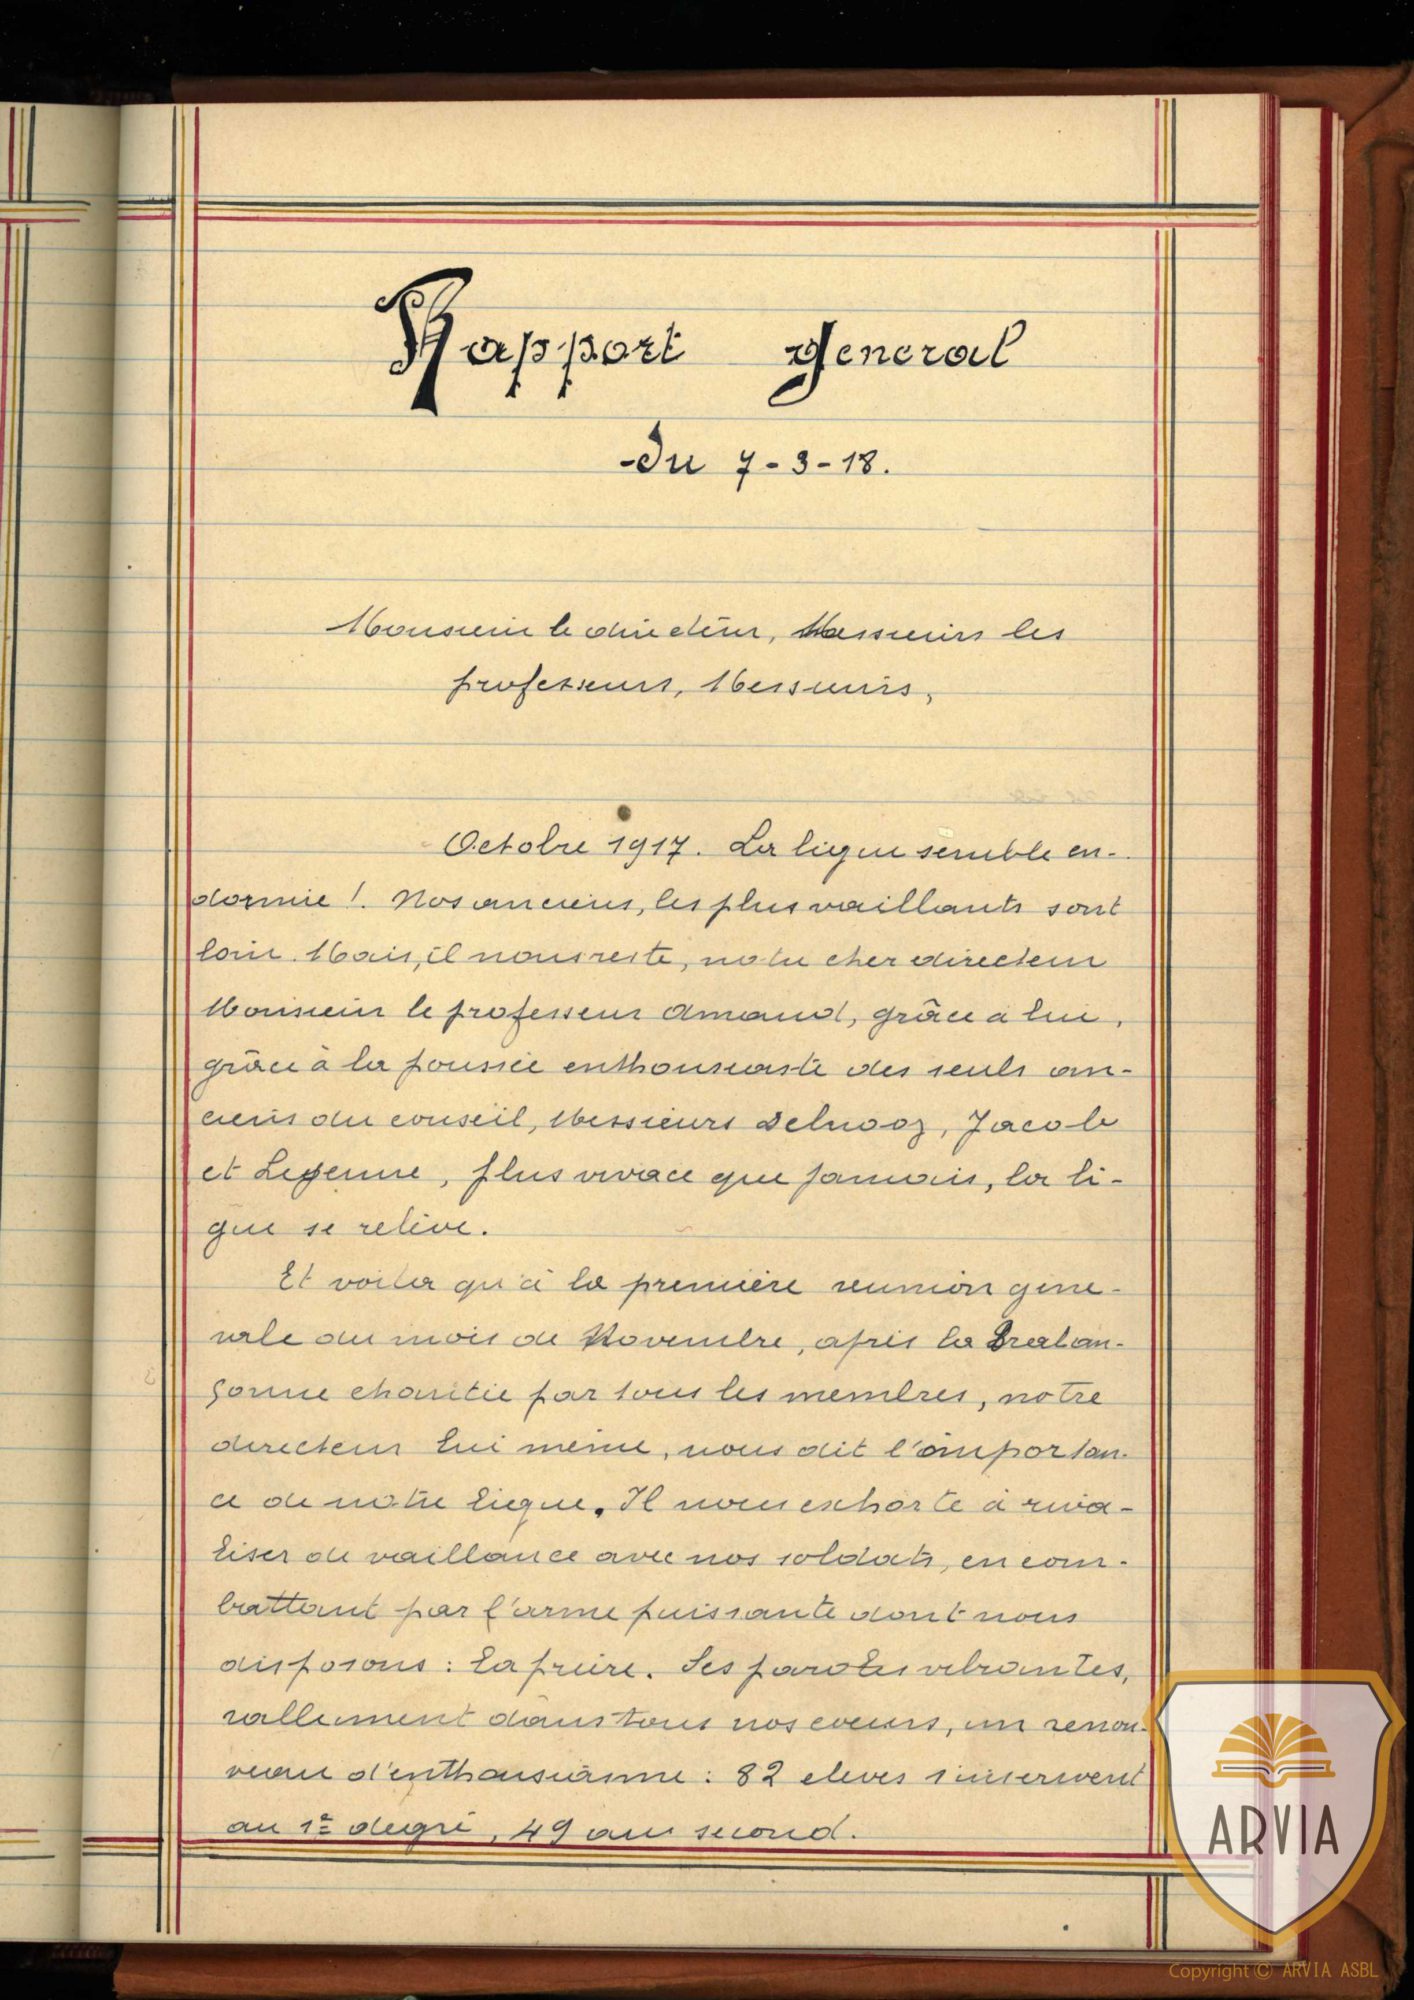 Rapport general
du 7-3-18.
Monsieur le directeur, Messieurs les
professeurs, Messieurs,
Octobre 1917. La ligue semble en-
dormie !. Nos anciens, les plus vaillants sont
loin. Mais, il nous reste, notre cher directeur
Monsieur le professeur Amand, grâce a lui,
grâce à la poussée enthousiaste des seuls an-
ciens du conseil, Messieurs Delnooz, Jacob
et Lejeune, plus vivace que jamais, la li-
gue se relève.
Et voila qu'à la première reunion gene-
rale du mois de Novembre, après la Braban-
çonne chantée par tous les membres, notre
directeur lui même, nous dit l'importan-
ce de notre ligue. Il nous exhorte à riva-
liser de vaillance avec nos soldats, en com-
battant par l'arme puissante dont nous
disposons : la prière. Ses paroles vibrantes,
rallument dans tous nos coeurs, un renou-
veau d'enthousiasme : 82 eleves s'inscrivent
au 1er degré, 49 au second.
ARVIA
Copyright © ARVIA ASBL